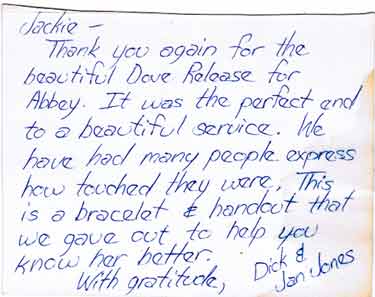 Jackie -
Thank you again for the
beautiful Dove Release for
Abbey. It was the perfect end
to a beautiful service. We
have had many people express
how touched they were. This
is a bracelet & handout that
we gave out to help you
know her better.
With gratitude,
Dick &
Jan Jones